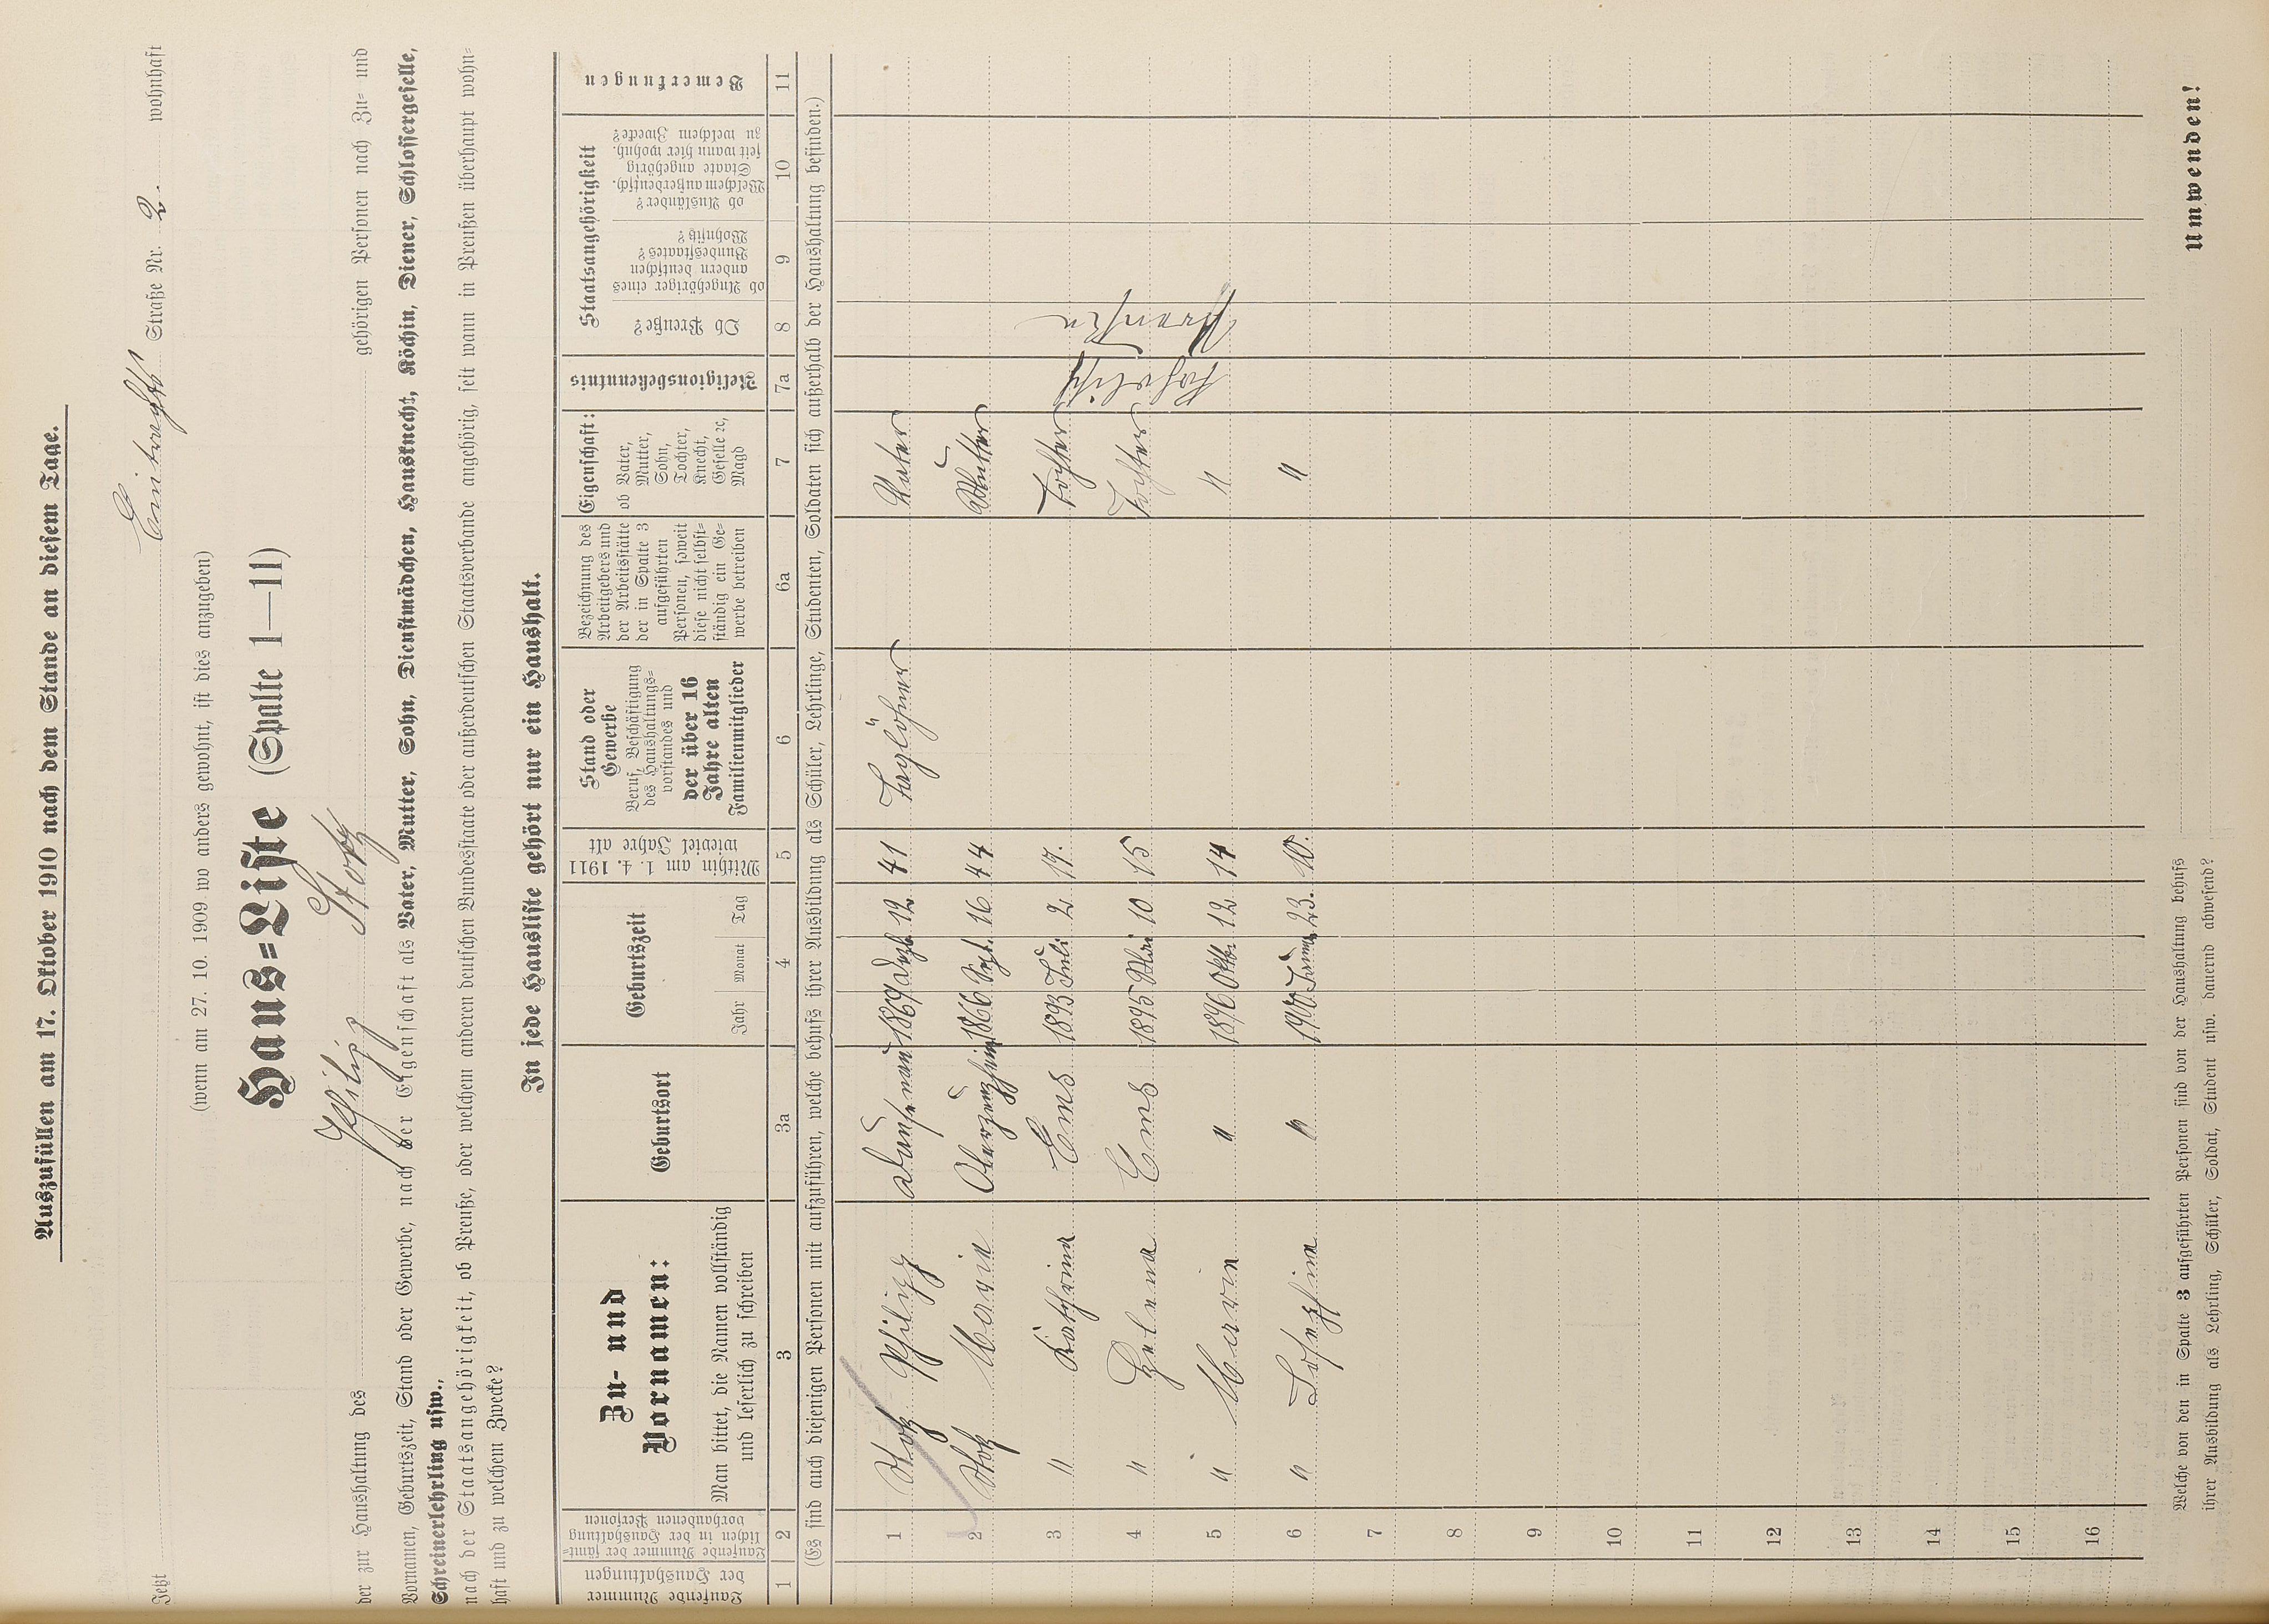 Auszufüllen am 17. Oktober 1910 nach dem Stande an diesem Tage.
Jetzt Eintrachts Straße Nr. 2. wohnhaft
(wenn am 27. 10. 1909 wo anders gewohnt, ist dies anzugeben)
Haus=Liste (Spalte 1—11)
der zur Haushaltung des Philipp Stotz gehörigen Personen nach Zu= und
Vornamen, Geburtszeit, Stand oder Gewerbe, nach der Eigenschaft als Vater, Mutter, Sohn, Dienstmädchen, Hausknecht, Köchin, Diener, Schlossergeselle,
Schreinerlehrling usw.,
nach der Staatsangehörigkeit, ob Preuße, oder welchem anderen deutschen Bundesstaate oder außerdeutschen Staatsverbande angehörig, seit wann in Preußen überhaupt wohn=
haft und zu welchem Zwecke?
In jede Hausliste gehört nur ein Haushalt.
Laufende Nummer der Haushaltungen
Laufende Nummer der sämt=lichen in der Haushaltung vorhandenen Personen
Zu- und Vornamen:
Man bittet, die Namen vollständig und leserlich zu schreiben
Geburtsort
Geburtszeit
Jahr Monat Tag
Mithin am 1. 4. 1911 wieviel Jahre alt
Stand oder Gewerbe
Beruf, Beschäftigung des Haushaltungs=vorstandes und der über 16 Jahre alten Familienmitglieder
Bezeichnung des Arbeitgebers und der Arbeitsstätte der in Spalte 3 aufgeführten Personen, soweit diese nicht selbst=ständig ein Ge=werbe betreiben
Eigenschaft:
ob Vater, Mutter, Sohn, Tochter, Knecht, Geselle ec, Magd
Religionsbekenntnis
Staatsangehörigkeit
Ob Preuße?
ob Angehöriger eines andern deutschen Bundesstaates? Wohnsitz?
ob Ausländer? Welchem außerdeutsch. Staate angehörig seit wann hier wohnh. zu welchem Zwecke?
Bemerkungen
1 2 3 3a 4 5 6 6a 7 7a 8 9 10 11
(Es sind auch diejenigen Personen mit aufzuführen, welche behufs ihrer Ausbildung als Schüler, Lehrlinge, Studenten, Soldaten sich außerhalb der Haushaltung befinden.)
1 Stotz Philipp Dausenau 1869 Dezb. 12 41 Taglöhner Vater
2 Stotz Maria 1866 Sept. 16 44 Mutter
3 " Katharina Ems 1893 Juli 2 17. Tochter
4 " Helena Ems 1895 Mai 10 15 Tochter
5 " Maria " 1896 Oktb. 12 14 "
6 " Josephina " 1900 23. 10. "
katholisch
Preußen
7
8
9
10
11
12
13
14
15
16
Welche von den in Spalte 3 aufgeführten Personen sind von der Haushaltung behufs
ihrer Ausbildung als Lehrling, Schüler, Soldat, Student usw. dauernd abwesend?
Umwenden!